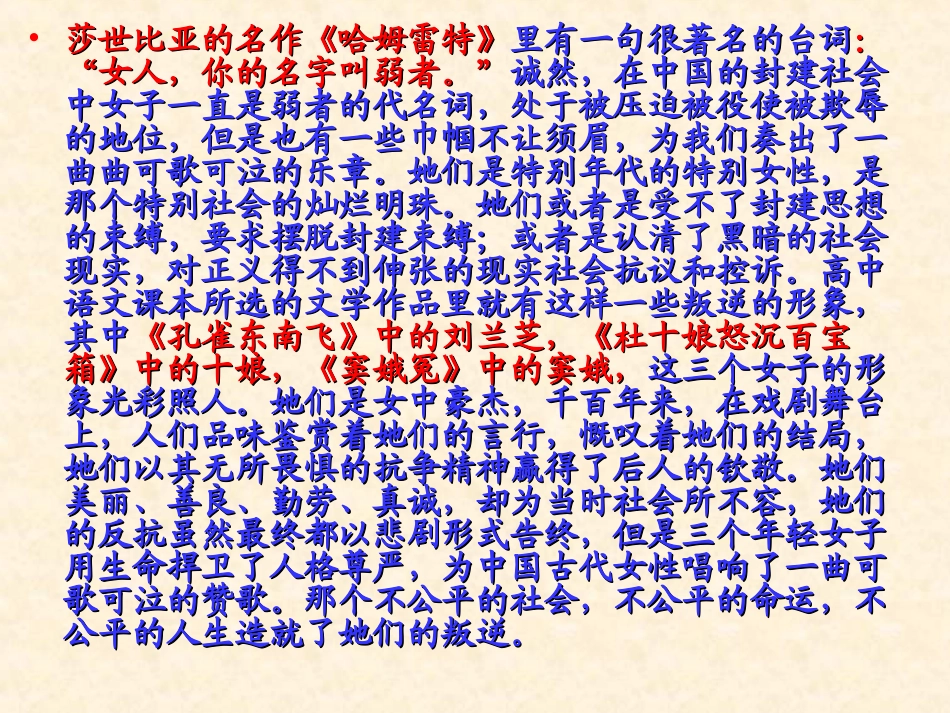 • 莎世比亚的名作《哈姆雷特》里有一句很著名的台词：
“女人，你的名字叫弱者。”诚然，在中国的封建社会
中女子一直是弱者的代名词，处于被压迫被役使被欺辱
的地位，但是也有一些巾帼不让须眉，为我们奏出了一
曲曲可歌可泣的乐章。她们是特别年代的特别女性，是
那个特别社会的灿烂明珠。她们或者是受不了封建思想
的束缚，要求摆脱封建束缚；或者是认清了黑暗的社会
现实，对正义得不到伸张的现实社会抗议和控诉。高中
语文课本所选的文学作品里就有这样一些叛逆的形象，
其中《孔雀东南飞》中的刘兰芝，《杜十娘怒沉百宝
箱》中的十娘，《窦娥冤》中的窦娥，这三个女子的形
象光彩照人。她们是女中豪杰，千百年来，在戏剧舞台
上，人们品味鉴赏着她们的言行，慨叹着她们的结局，
她们以其无所畏惧的抗争精神赢得了后人的钦敬。她们
美丽、善良、勤劳、真诚，却为当时社会所不容，她们
的反抗虽然最终都以悲剧形式告终，但是三个年轻女子
用生命捍卫了人格尊严，为中国古代女性唱响了一曲可
歌可泣的赞歌。那个不公平的社会，不公平的命运，不
公平的人生造就了她们的叛逆。